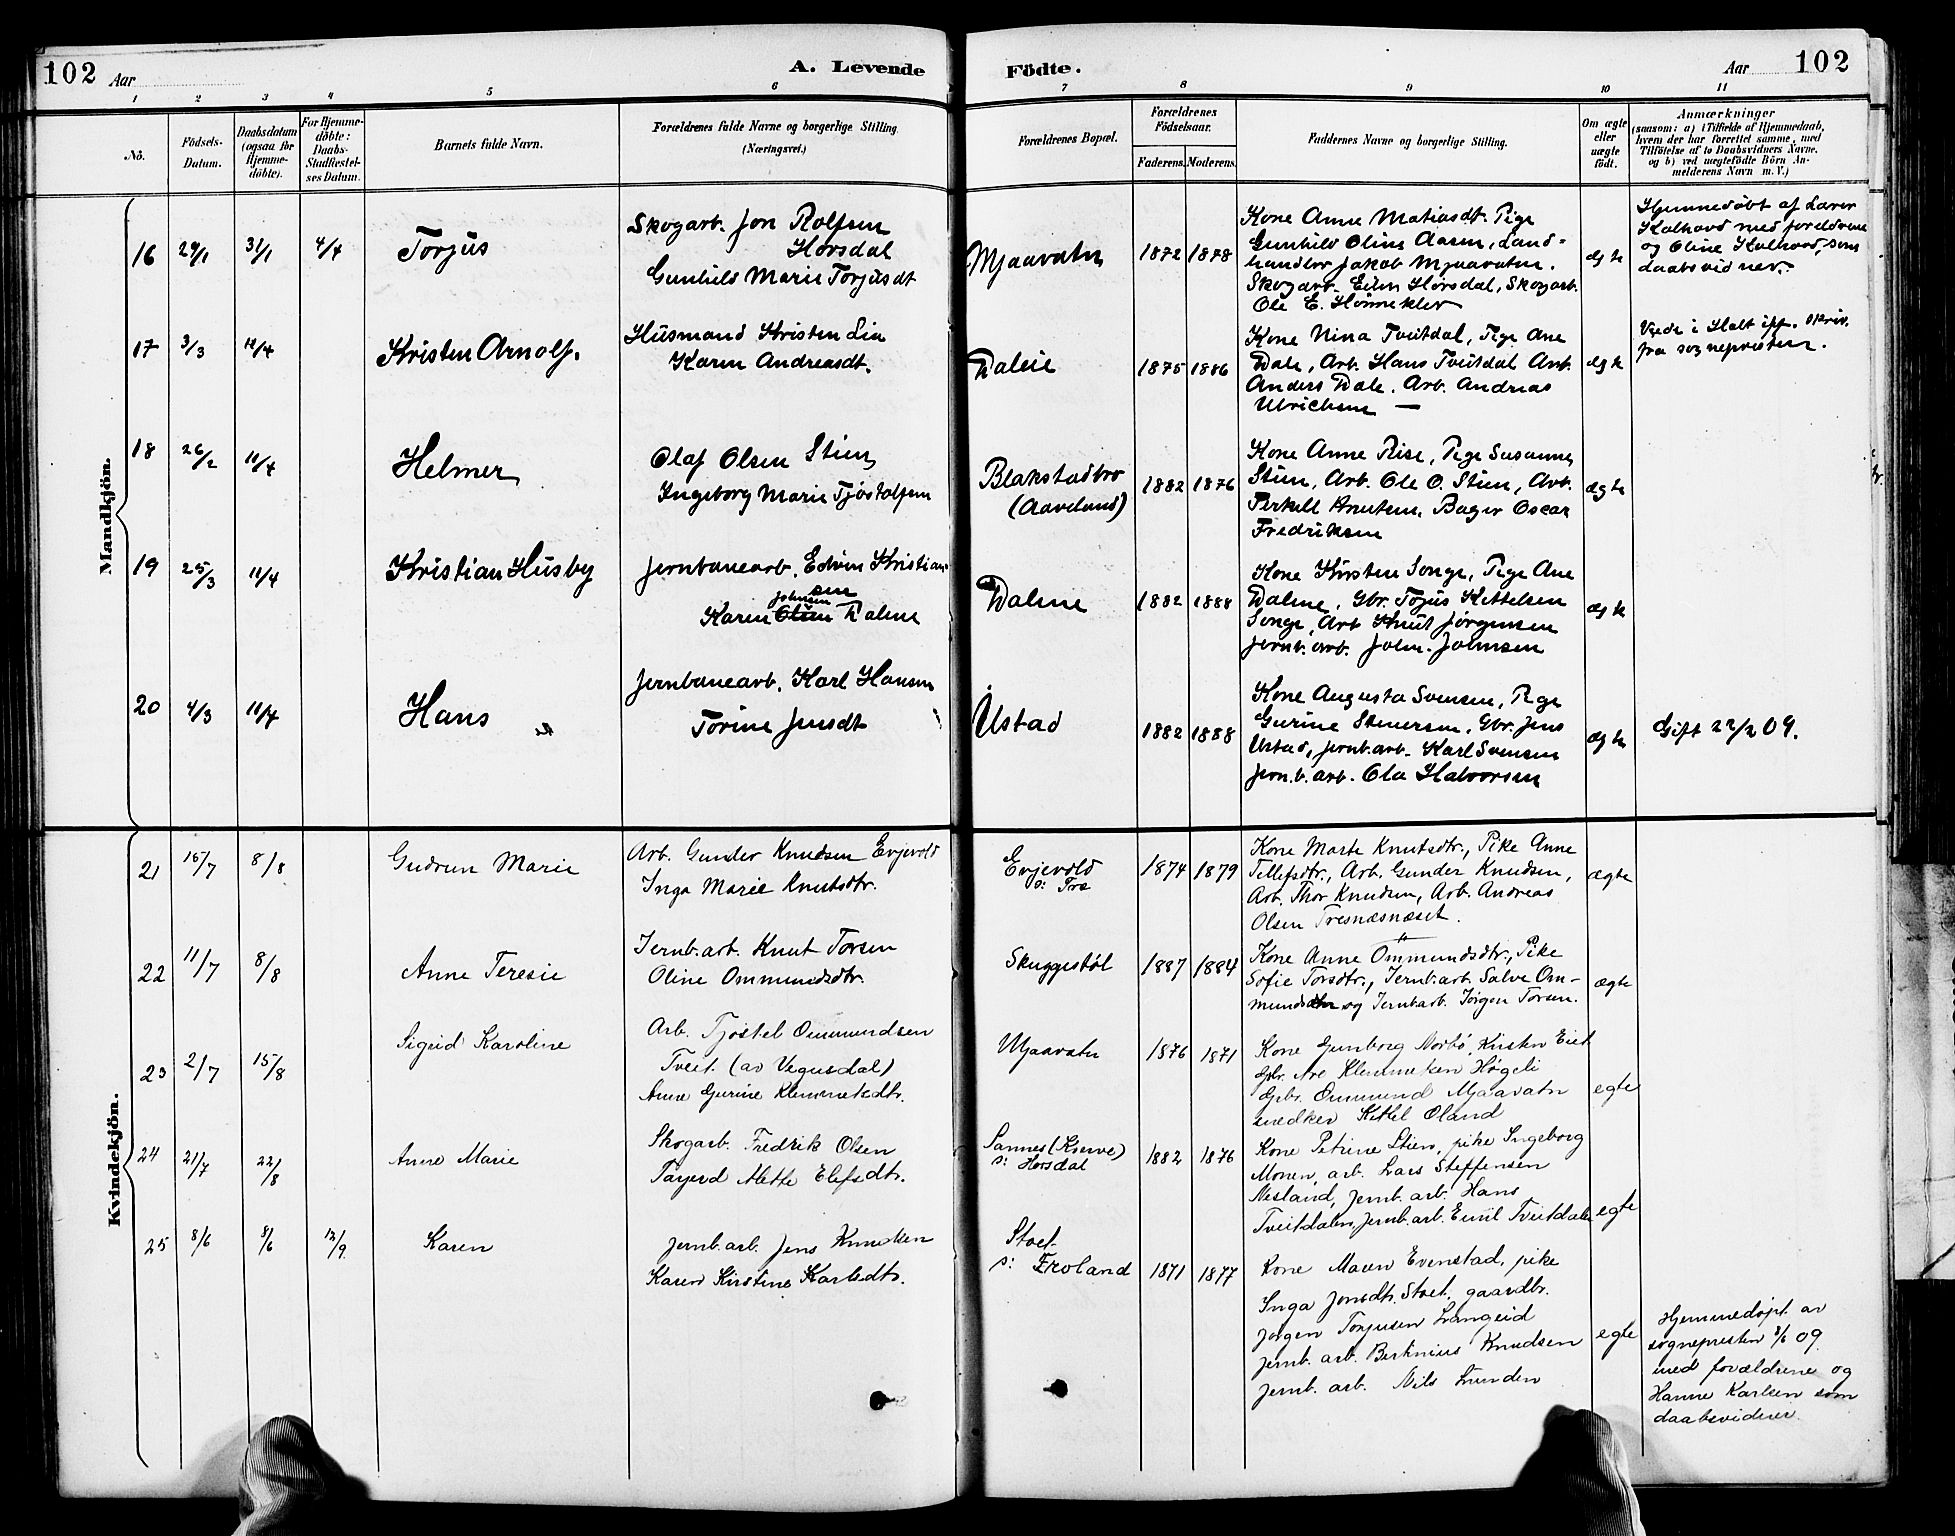 102 Aar
A. Levende
Födte.
Aar 102
1 2 3 4 5 6 7 8 9 10 11
No.
Födsels-
Datum.
Daabsdatum
(ogsaa for
Hjemme-
döbte).
For Hjemme-
döbte:
Daabs-
Stadfæstel-
ses Datum.
Barnets fulde Navn.
Forældrenes fulde Navne og borgerlige Stilling
(Næringsvei.)
Forældrenes Bopæl.
Forældrenes
Födselsaar.
Faderens. Moderens.
Faddernes Navne og borgerlige Stilling.
Om ægte
eller
uægte
födt.
Anmærkninger
(saasom: a) i Tilfælde af Hjemmedaab,
hvem der har forrettet samme, med
Tilföielse af to Daabsvidners Navne.
og b) ved uægtefödte Börn An-
melderens Navn m. V.)
Mandkjön.
16 29/1 31/1 4/4 Torjus
Skogarb. Jon Rolfsen
Horsdal
Gunhild Marie Torjusdt
Mjaavatn 1872 1878
Kone Anne Matiasdt. Pige
Gunhild Oline Aasen, Land-
handler Jakob Mjaavatn.
Skogarb. Eilen Horsdal, Skogarb.
Ole E. Hönneklev
ægte
Hjemmedöbt af Lærer
Kalhovd med foreldrene
og Oline Kalhovd, som
daabsvidner.
17 3/3 11/4 Kristen Arnolf.
Husmand Kristen Lia
Karen Andreasdt.
Daleie 1875 1886
Kone Nina Tveitdal, Pige Ane
Dale, Arb. Hans Tveitdal Arb.
Anders Dale. Arb. Andreas
Ulrichsen —
ægte
i Holt ifl. skriv.
fra sogneprästen.
18 26/2 11/4 Helmer
Olaf Olsen Stien
Ingeborg Marie Tjöstolfsen
Blakstadbro
(Aavelund) 1882 1876
Kone Anne Rise, Pige Susanne
Stien, Arb. Ole O. Stien, Arb.
Terkell Knutsen, Bager Oscar
Fredriksen
ægte
19 25/3 11/4 Kristian Husby
Jernbanearb. Edvin Kristian-
sen
Johnsen
Karen Olsen Dalene
Dalene 1882 1888
Kone Kirsten Songe, Pige Ane
Dalene, Gbr. Tojus Kittelsen
Songe, Arb Knut Jörgensen
Jernb. arb. John. Johnsen
ægte
20 4/3 11/4 Hans
Jernbanearb. Karl Hansen
Torine Jensdt
Ustad 1882 1888
Kone Augusta Svensen, Pige
Gurine Stenersen, Gbr. Jens
Ustad, Jernb.arb. Karl Svensen
Jern.b. arb. Ola Halvorsen
ægte
Gift 22/2 09.
Kvindekjön.
21 15/7 8/8 Gudrun Marie
Arb. Gunder Knudsen Evjevold
Inga Marie Knutsdtr.
Evjevold
s: Fre 1874 1879
Kone Marte Knutsdtr., Pike Anne
Tellefsdtr., Arb. Gunder Knudsen,
Arb. Thor Knudsen, Arb. Andreas
Olsen Tresnæsnæset.
ægte
22 11/7 8/8 Anne Teresie
Jernb.arb. Knut Torsen
Oline Ommundsdtr.
Skuggestöl 1887 1884
Kone Anne Ommundsdtr., Pike
Sofie Torsdtr., Jernb.arb. Salve Om-
munds og Jernb.arb. Jörgen Torsen.
ægte
23 2/7 15/8 Sigrid Karoline
Arb. Tjöstel Ommundsen
Tveit. (av Vegusdal)
Anne Gurine Klemmetsdtr.
Mjaavatn 1876 1871
Kone Gunborg Norbö, Kirsten Eiet
Gbr. Are Klemmetsen Högeli
Gbr. Ommund Mjaavatn
snedker Kittel Oland
egte
24 21/7 22/8 Anne Marie
Skogarb. Fredrik Olsen
Tarjerd Mette Elefsdtr.
Sannes (Kserve)
s: Horsdal 1882 1876
Kone Petrine Stien, pike Ingeborg
Monen, arb. Lars Steffensen
Nesland, Jernb. arb. Hans
Tveitdalen, Jernb.arb. Emil Tveitdalen
egte
25 8/6 8/6 12/9 Karen
Jernb.arb. Jens Knudsen
Karen Kirstine Karlsdtr.
Stoet
s: Froland 1871 1877
Kone Maren Evenstad, pike
Inga Jensdtr. Stoet, gaardbr.
Jörgen Torjusen Langeid
Jernb. arb. Bertinius Knudsen
Jernb. arb. Nils Lunden
egte
Hjemmedöpt av
sognepresten 8/6 09
med forældrene og
Hanne Karlsen som
daabsvidner.